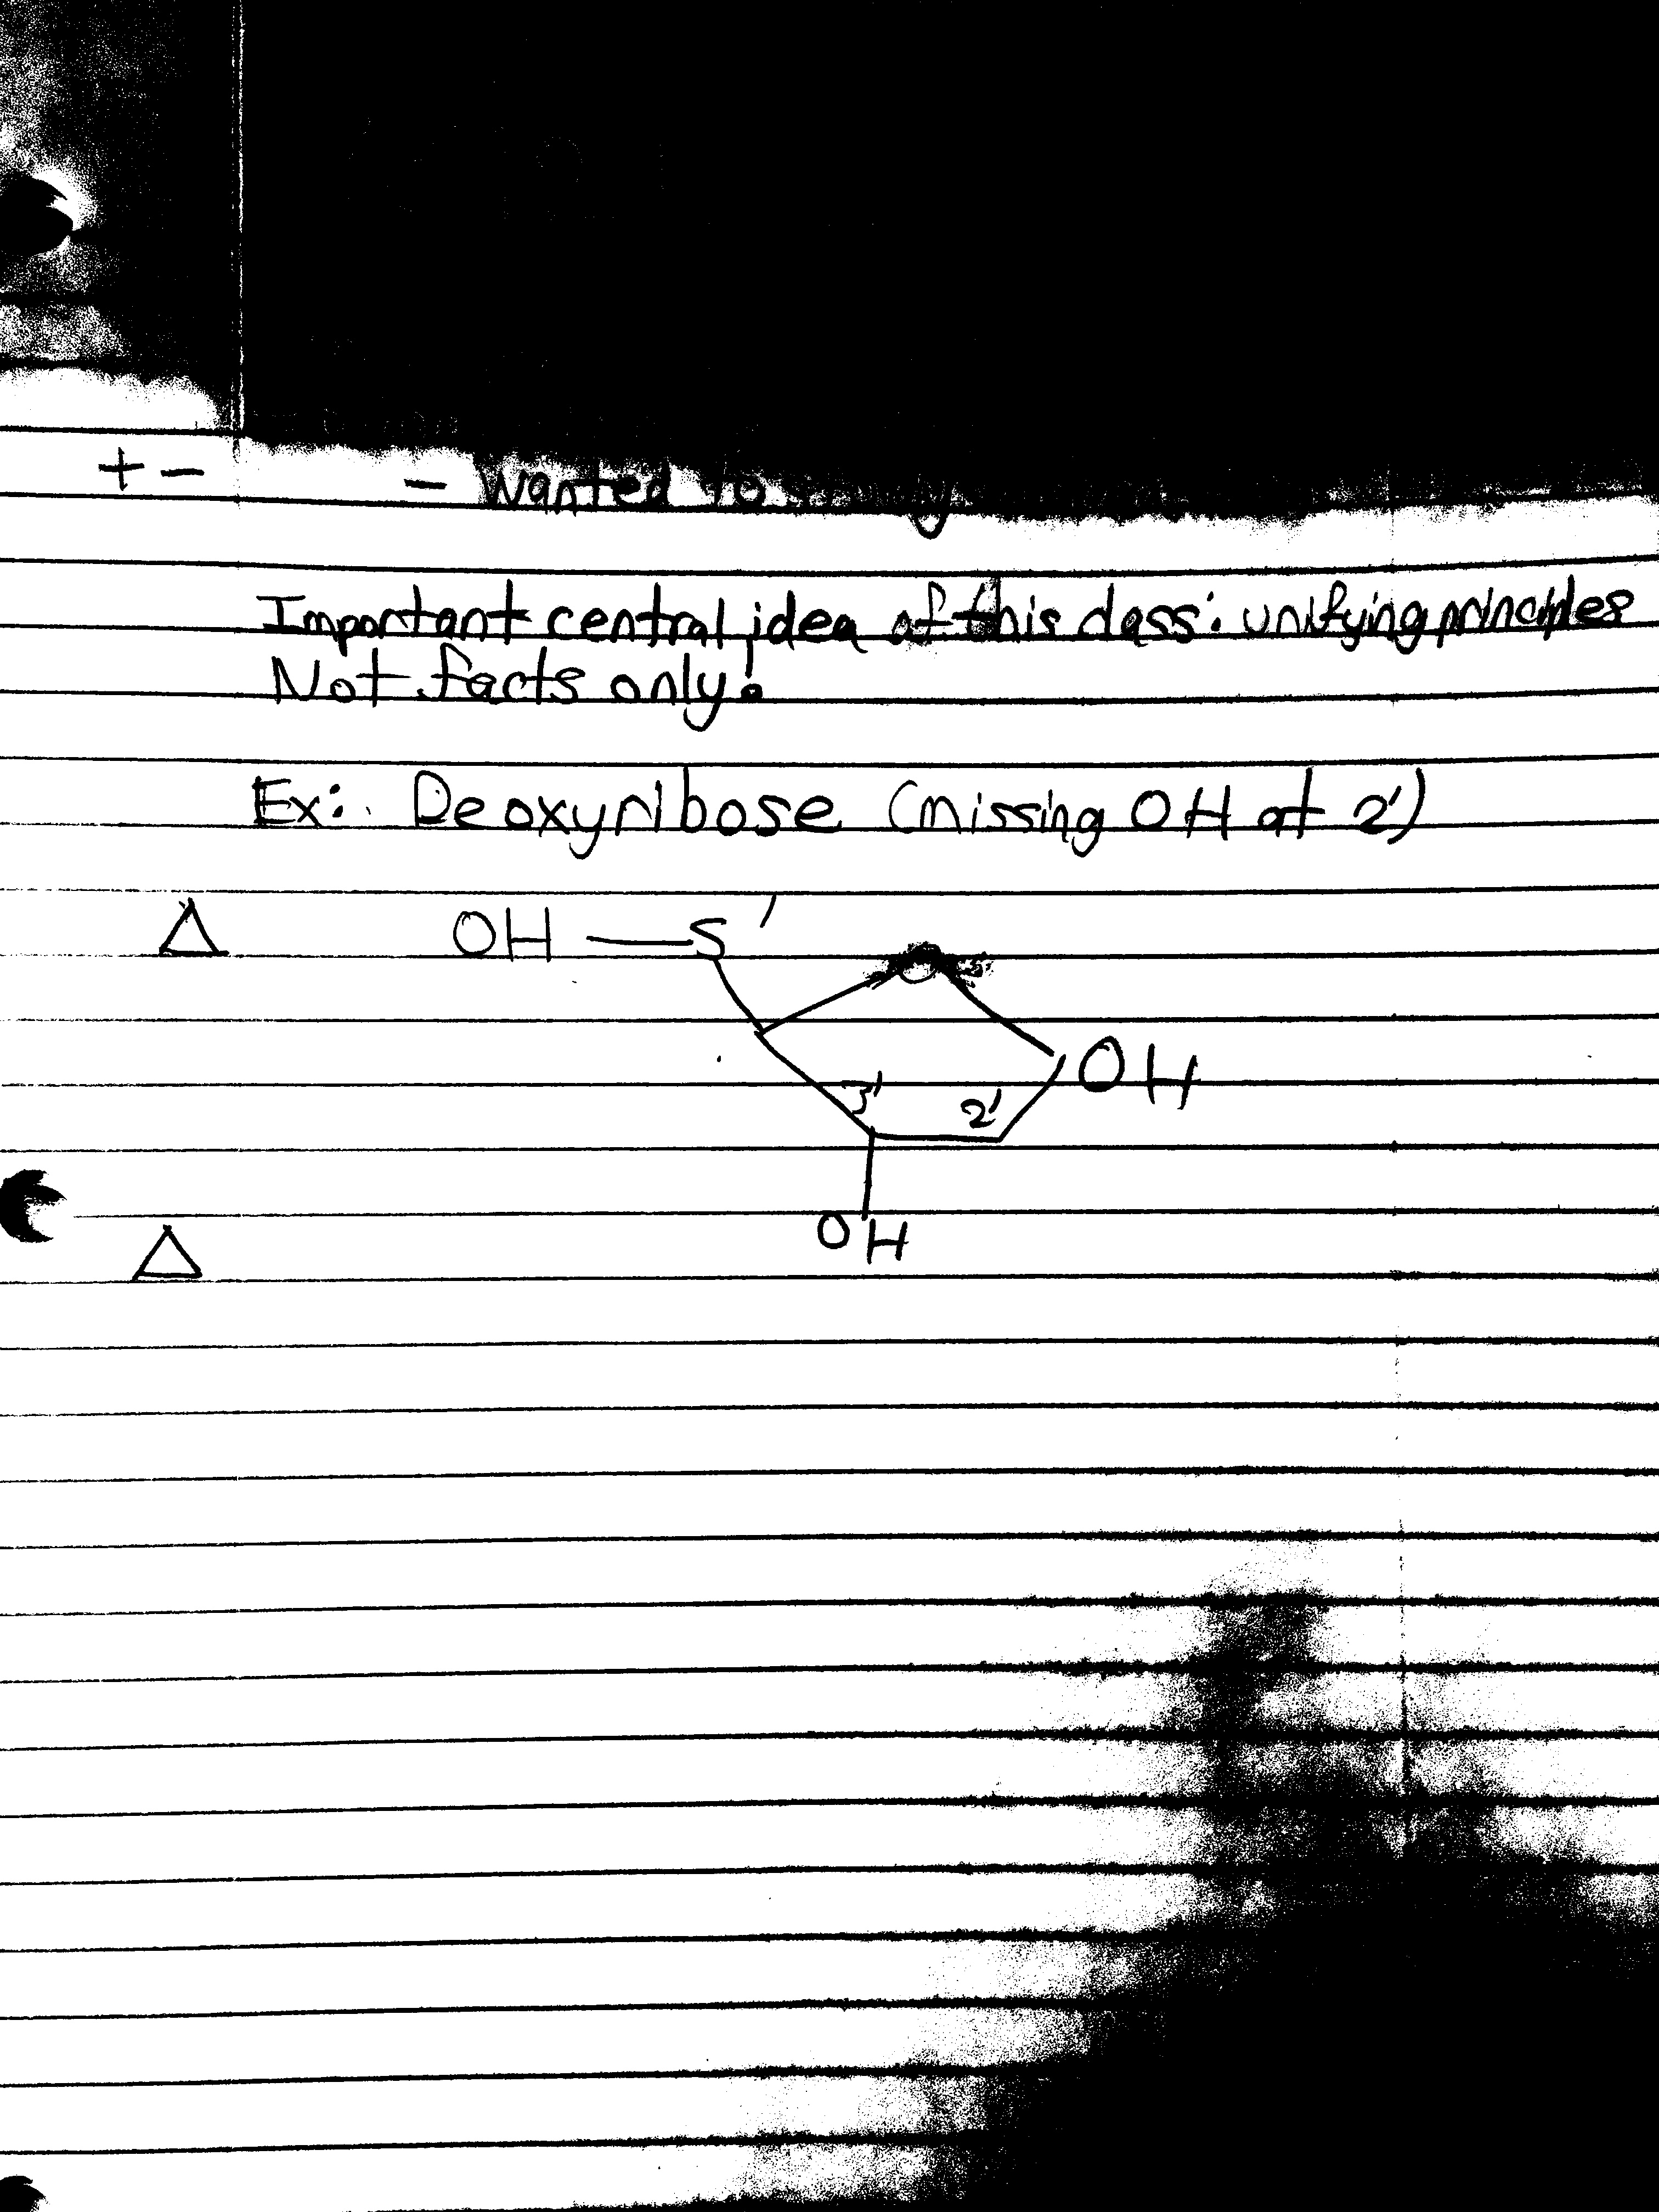 + - - wanted to study
Important central idea of this class: unifying principles
Not facts only!
Ex: Deoxyribose (missing OH at 2')
Δ OH — 5' O
OH
3' 2'
OH
Δ